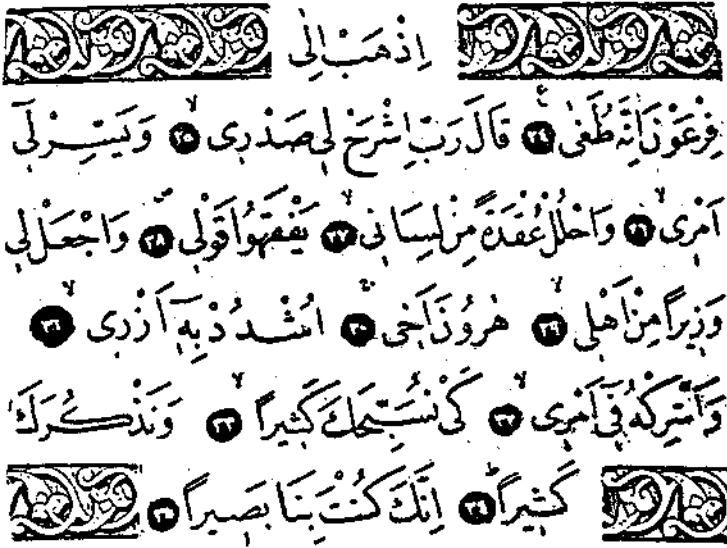 اِذْهَبْ اِلٰى
فِرْعَوْنَ اِنَّهُ طَغٰى ﴿٢٤﴾ قَالَ رَبِّ اشْرَحْ لٖى صَدْرٖى ﴿٢٥﴾ وَيَسِّرْ لٖٓى
اَمْرٖى ﴿٢٦﴾ وَاحْلُلْ عُقْدَةً مِنْ لِسَانٖى ﴿٢٧﴾ يَفْقَهُوا قَوْلٖى ﴿٢٨﴾ وَاجْعَلْ لٖى
وَزٖيرًا مِنْ اَهْلٖى ﴿٢٩﴾ هٰرُونَ اَخٖى ﴿٣٠﴾ اُشْدُدْ بِهٖٓ اَزْرٖى ﴿٣١﴾
وَاَشْرِكْهُ فٖٓى اَمْرٖى ﴿٣٢﴾ كَىْ نُسَبِّحَكَ كَثٖيرًا ﴿٣٣﴾ وَنَذْكُرَكَ
كَثٖيرًا ﴿٣٤﴾ اِنَّكَ كُنْتَ بِنَا بَصٖيرًا ﴿٣٥﴾